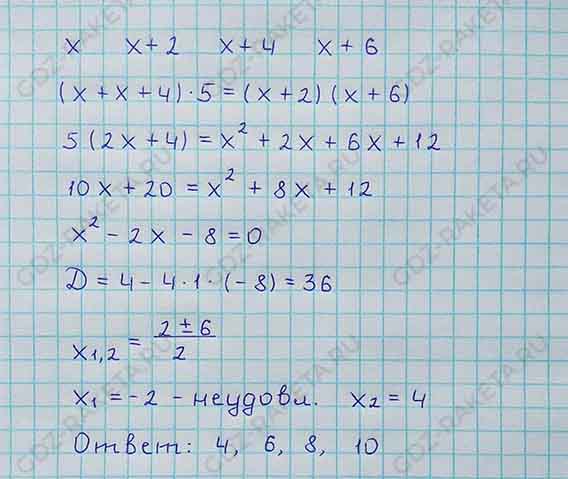 x x+2 x+4 x+6
(x+x+4)·5=(x+2)(x+6)
5(2x+4)=x²+2x+6x+12
10x+20=x²+8x+12
x²-2x-8=0
D=4-4·1·(-8)=36
x₁,₂ = (2±6)/2
x₁=-2 - неудовл. x₂=4
Ответ: 4, 6, 8, 10
GDZ-RAKETA.RU